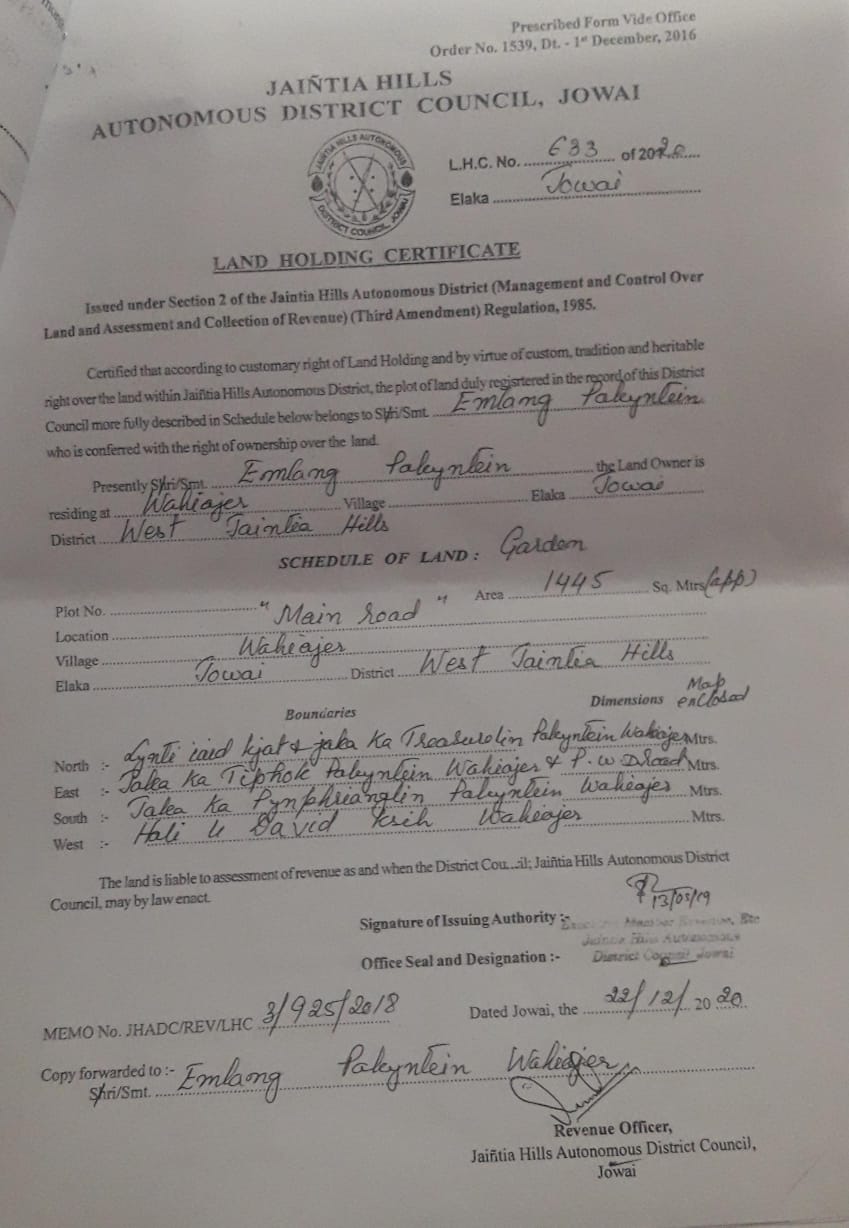 Prescribed Form Vide Office
Order No. 1539, Dt. - 1st December, 2016
JAIÑTIA HILLS
AUTONOMOUS DISTRICT COUNCIL, JOWAI
JAIÑTIA HILLS AUTONOMOUS
DISTRICT COUNCIL, JOWAI
L.H.C. No. 633 of 2020
Elaka Jowai
LAND HOLDING CERTIFICATE
Issued under Section 2 of the Jaintia Hills Autonomous District (Management and Control Over
Land and Assessment and Collection of Revenue) (Third Amendment) Regulation, 1985.
Certified that according to customary right of Land Holding and by virtue of custom, tradition and heritable
right over the land within Jaiñtia Hills Autonomous District, the plot of land duly regisrtered in the record of this District
Council more fully described in Schedule below belongs to Shri/Smt. Emlang Pakyntein
who is conferred with the right of ownership over the land.
Presently Shri/Smt. Emlang Pakyntein the Land Owner is
residing at Wahiajer Village Elaka Jowai
District West Jaintia Hills
SCHEDULE OF LAND : Garden
Plot No. Area 1445 Sq. Mtrs (app)
Location "Main road"
Village Wahiajer
Elaka Jowai District West Jaintia Hills
Boundaries Dimensions Map enclosed
North :- Lynti iaid kjat & jaka Ka Treasurelin Pakyntein Wahiajer Mtrs.
East :- Jaka Ka Tiphok Pakyntein Wahiajer & P.W.D Road Mtrs.
South :- Jaka Ka Pynphrianglin Pakyntein Wahiajer Mtrs.
West :- Hali u David Wahiajer Mtrs.
The land is liable to assessment of revenue as and when the District Cou...cil; Jaiñtia Hills Autonomous District
Council, may by law enact.
13/05/19
Signature of Issuing Authority :- Member Revenue, Etc
Jaintia Hills Autonomous
Office Seal and Designation :- District Council Jowai
MEMO No. JHADC/REV/LHC 3/925/2018 Dated Jowai, the 22/12/2020
Copy forwarded to :-
Shri/Smt. Emlang Pakyntein Wahiajer
Revenue Officer,
Jaiñtia Hills Autonomous District Council,
Jowai